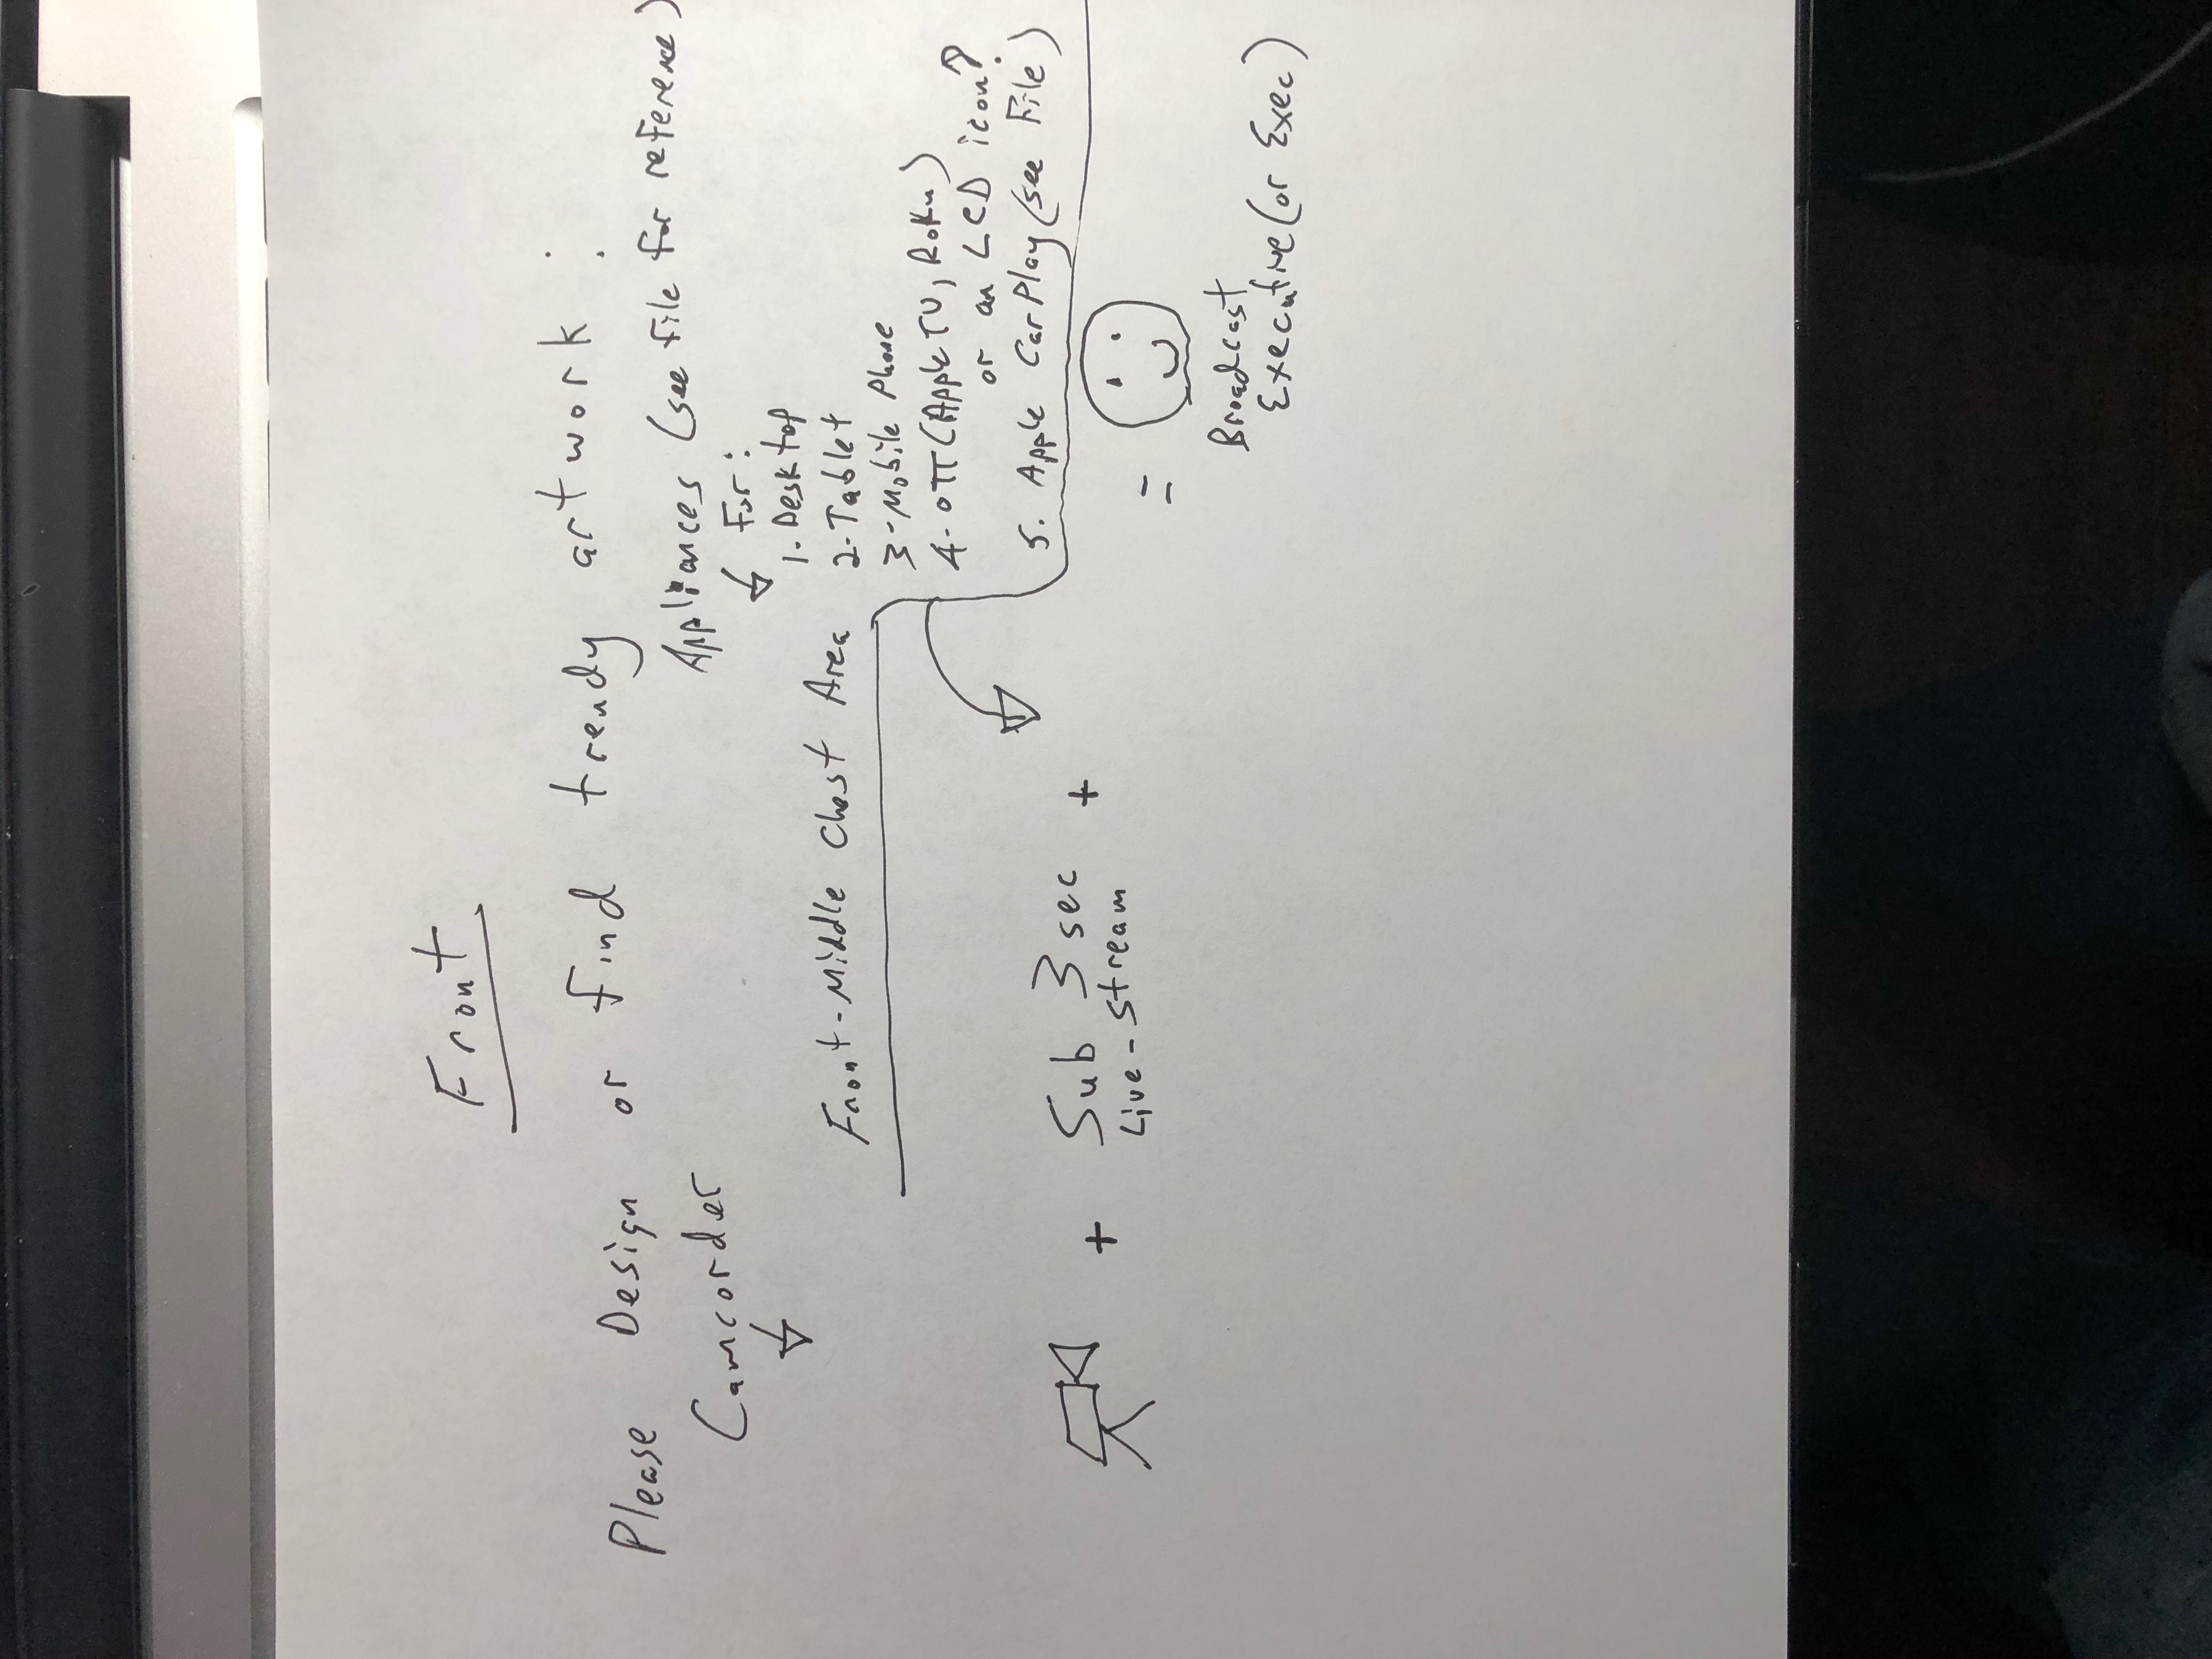 Front
Please Design or find trendy artwork:
Camcorder
Appliances (see file for reference)
For:
1-Desktop
2-Tablet
3-Mobile Phone
4-OTT (Apple TV, Roku)
or an LCD icon?
5. Apple CarPlay (see File)
Front-Middle Chest Area
+ Sub 3 sec +
Live-Stream
=
Broadcast
Executive (or Exec)